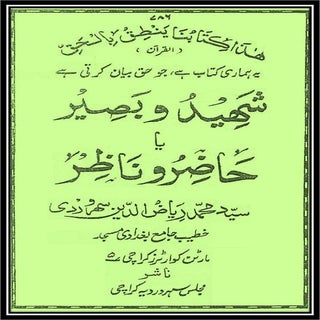 ۷۸۶
هٰذَا كِتَابُنَا يَنْطِقُ بِالْحَقِّ
(القرآن)
یہ ہماری کتاب ہے، جو حق بیان کرتی ہے
شَھِیْد و بَصِیْر
یا
حَاضِر و نَاظِر
سید محمد ریاض الدین سہروردی
خطیب جامع بغدادی مسجد
مارٹن کوارٹرز کراچی ۵
ناشر
مجلس سہروردیہ کراچی